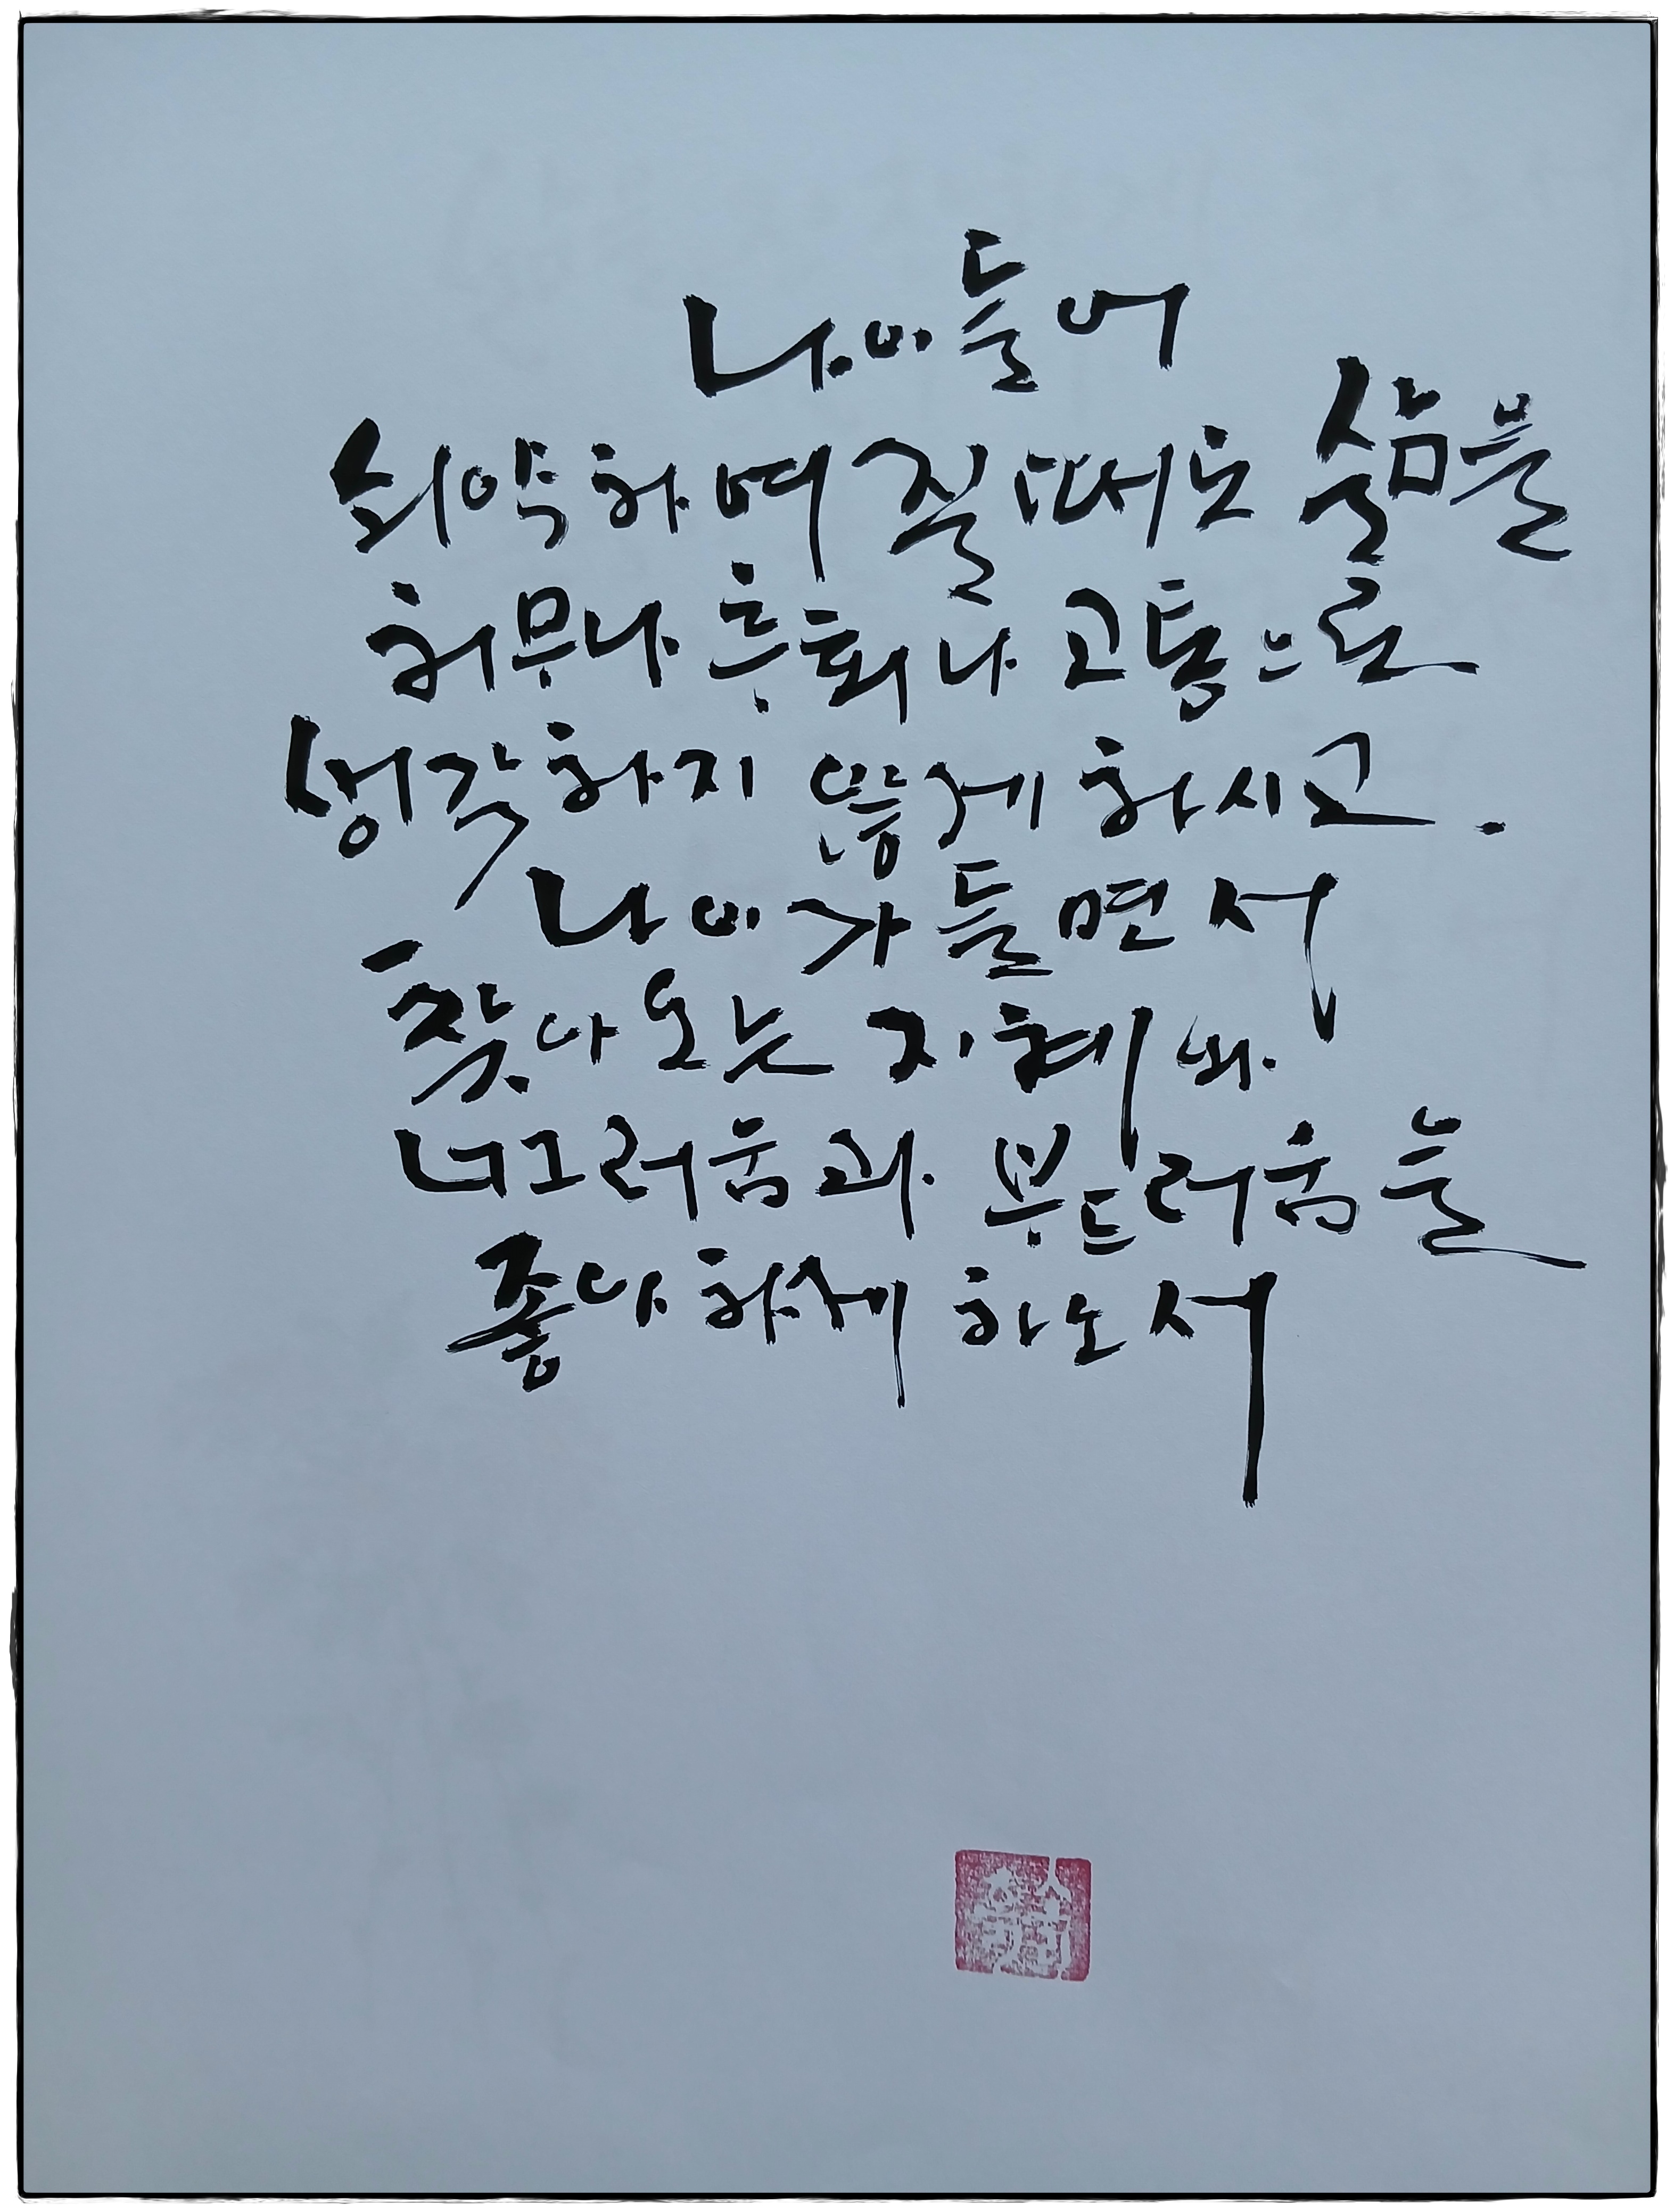 나이들어
쇠약하여 질때도 삶을
허무나 후회나 고통으로
생각하지 않게 하시고.
나이가 들면서
찾아오는 지혜와
너그러움과 부드러움을
좋아하게 하소서